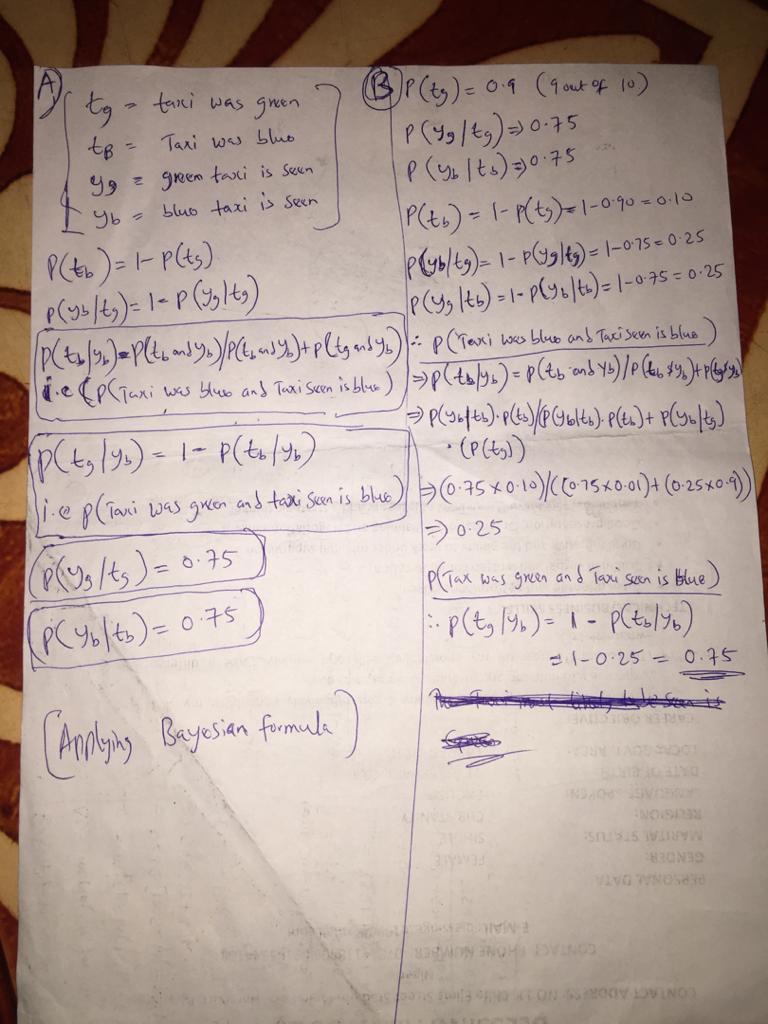 A)
tg = taxi was green
tB = Taxi was blue
yg = green taxi is seen
yb = blue taxi is seen
P(tb) = 1 - P(tg)
P(yb/tg) = 1 - P(yg/tg)
P(tb/yb) = P(tb and yb)/P(tb and yb) + P(tg and yb)
i.e (P(Taxi was blue and Taxi seen is blue)
P(tg/yb) = 1 - P(tb/yb)
i.e P(Taxi was green and taxi seen is blue)
P(yg/tg) = 0.75
P(yb/tb) = 0.75
[Applying Bayesian formula]
B) P(tg) = 0.9 (9 out of 10)
P(yg/tg) ⇒ 0.75
P(yb/tb) ⇒ 0.75
P(tb) = 1 - P(tg) = 1 - 0.90 = 0.10
P(yb/tg) = 1 - P(yg/tg) = 1 - 0.75 = 0.25
P(yg/tb) = 1 - P(yb/tb) = 1 - 0.75 = 0.25
∴ P(Taxi was blue and Taxi seen is blue)
⇒ P(tb/yb) = P(tb and yb)/P(tb & yb) + P(tg & yb)
⇒ P(yb/tb) · P(tb)/(P(yb/tb) · P(tb) + P(yb/tg)
· (P(tg))
⇒ (0.75 x 0.10)/((0.75 x 0.01) + (0.25 x 0.9))
⇒ 0.25
P(Tax was green and Taxi seen is blue)
∴ P(tg/yb) = 1 - P(tb/yb)
= 1 - 0.25 = 0.75